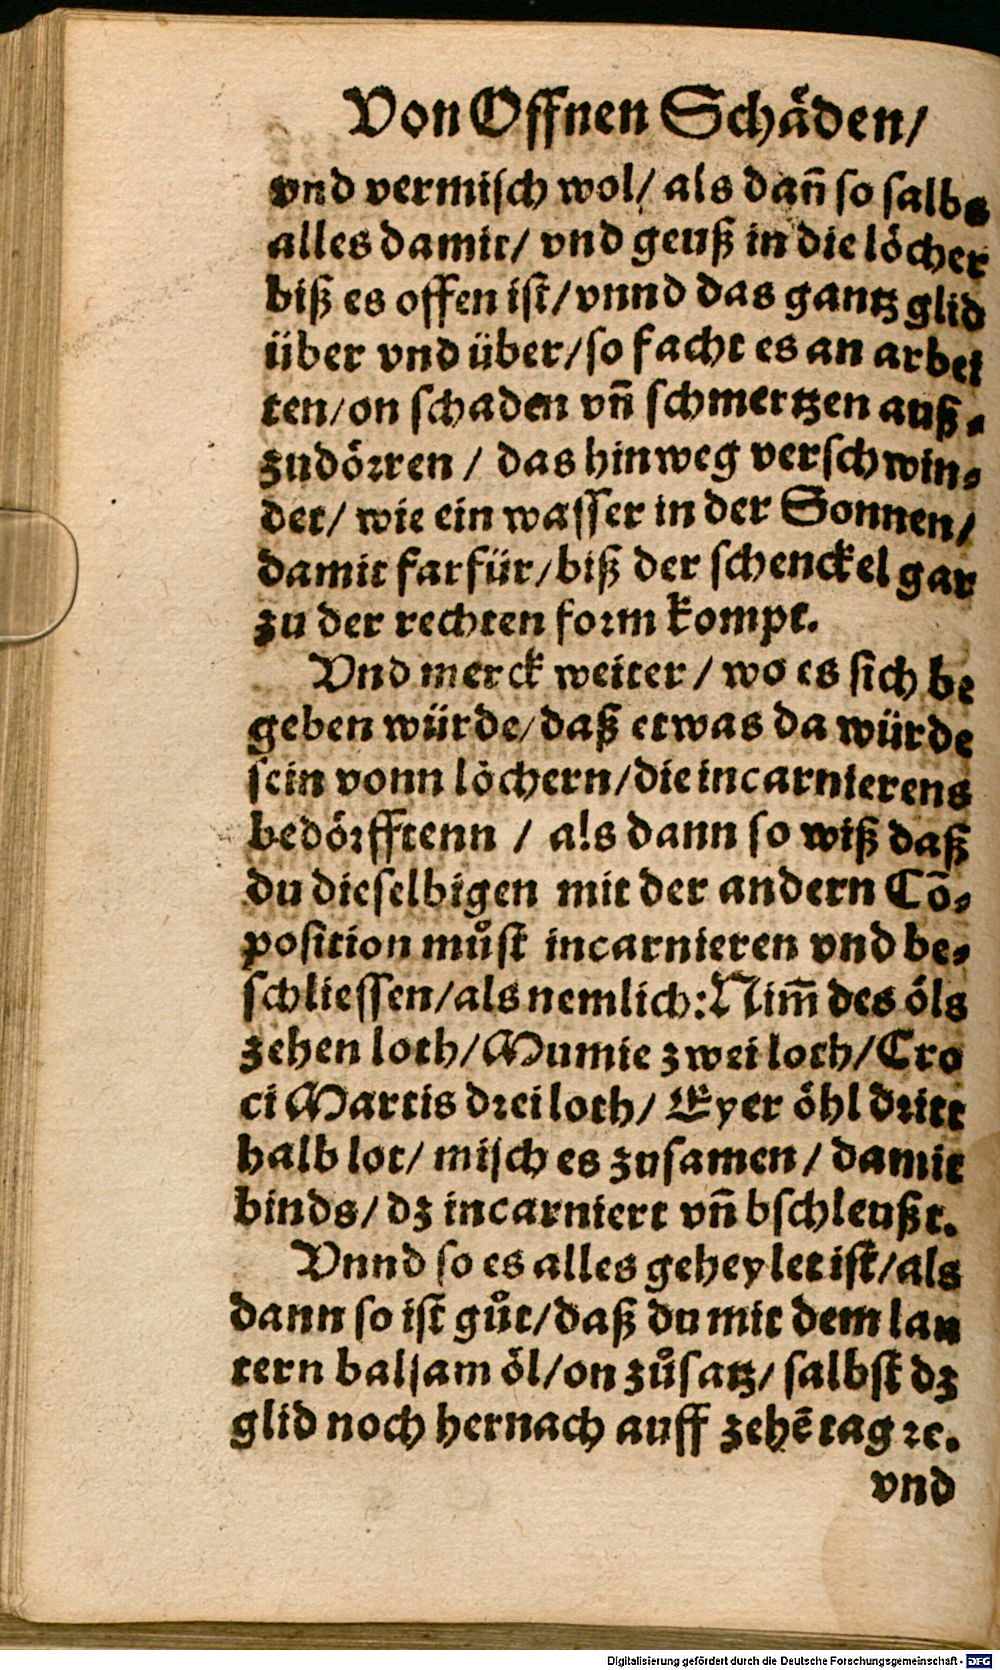 Von Offnen Schäden/
vnd vermisch wol/ als dañ so salbs
alles damit/ vnd geuß in die löcher
biß es offen ist/ vnnd das gantz glid
über vnd über/ so facht es an arbei
ten/ on schaden vñ schmertzen auß-
zudörren / das hinweg verschwin-
det/ wie ein wasser in der Sonnen/
damit farfür/ biß der schenckel gar
zu der rechten form kompt.
Vnd merck weiter / wo es sich be
geben würde/ daß etwas da würde
sein vonn löchern/ die incarnierens
bedörfftenn / als dann so wiß daß
du dieselbigen mit der andern Cō-
position můst incarnieren vnd be-
schliessen/ als nemlich: Nim̃ des öls
zehen loth/ Mumie zwei loth/ Cro
ci Martis drei loth/ Eyer öhl dritt
halb lot/ misch es zusamen / damit
binds/ dz incarniert vñ bschleußt.
Vnnd so es alles geheylet ist/ als
dann so ist gůt/ daß du mit dem lau
tern balsam öl/ on zůsatz/ salbst dz
glid noch hernach auff zehē tag ꝛc.
vnd
Digitalisierung gefördert durch die Deutsche Forschungsgemeinschaft - DFG